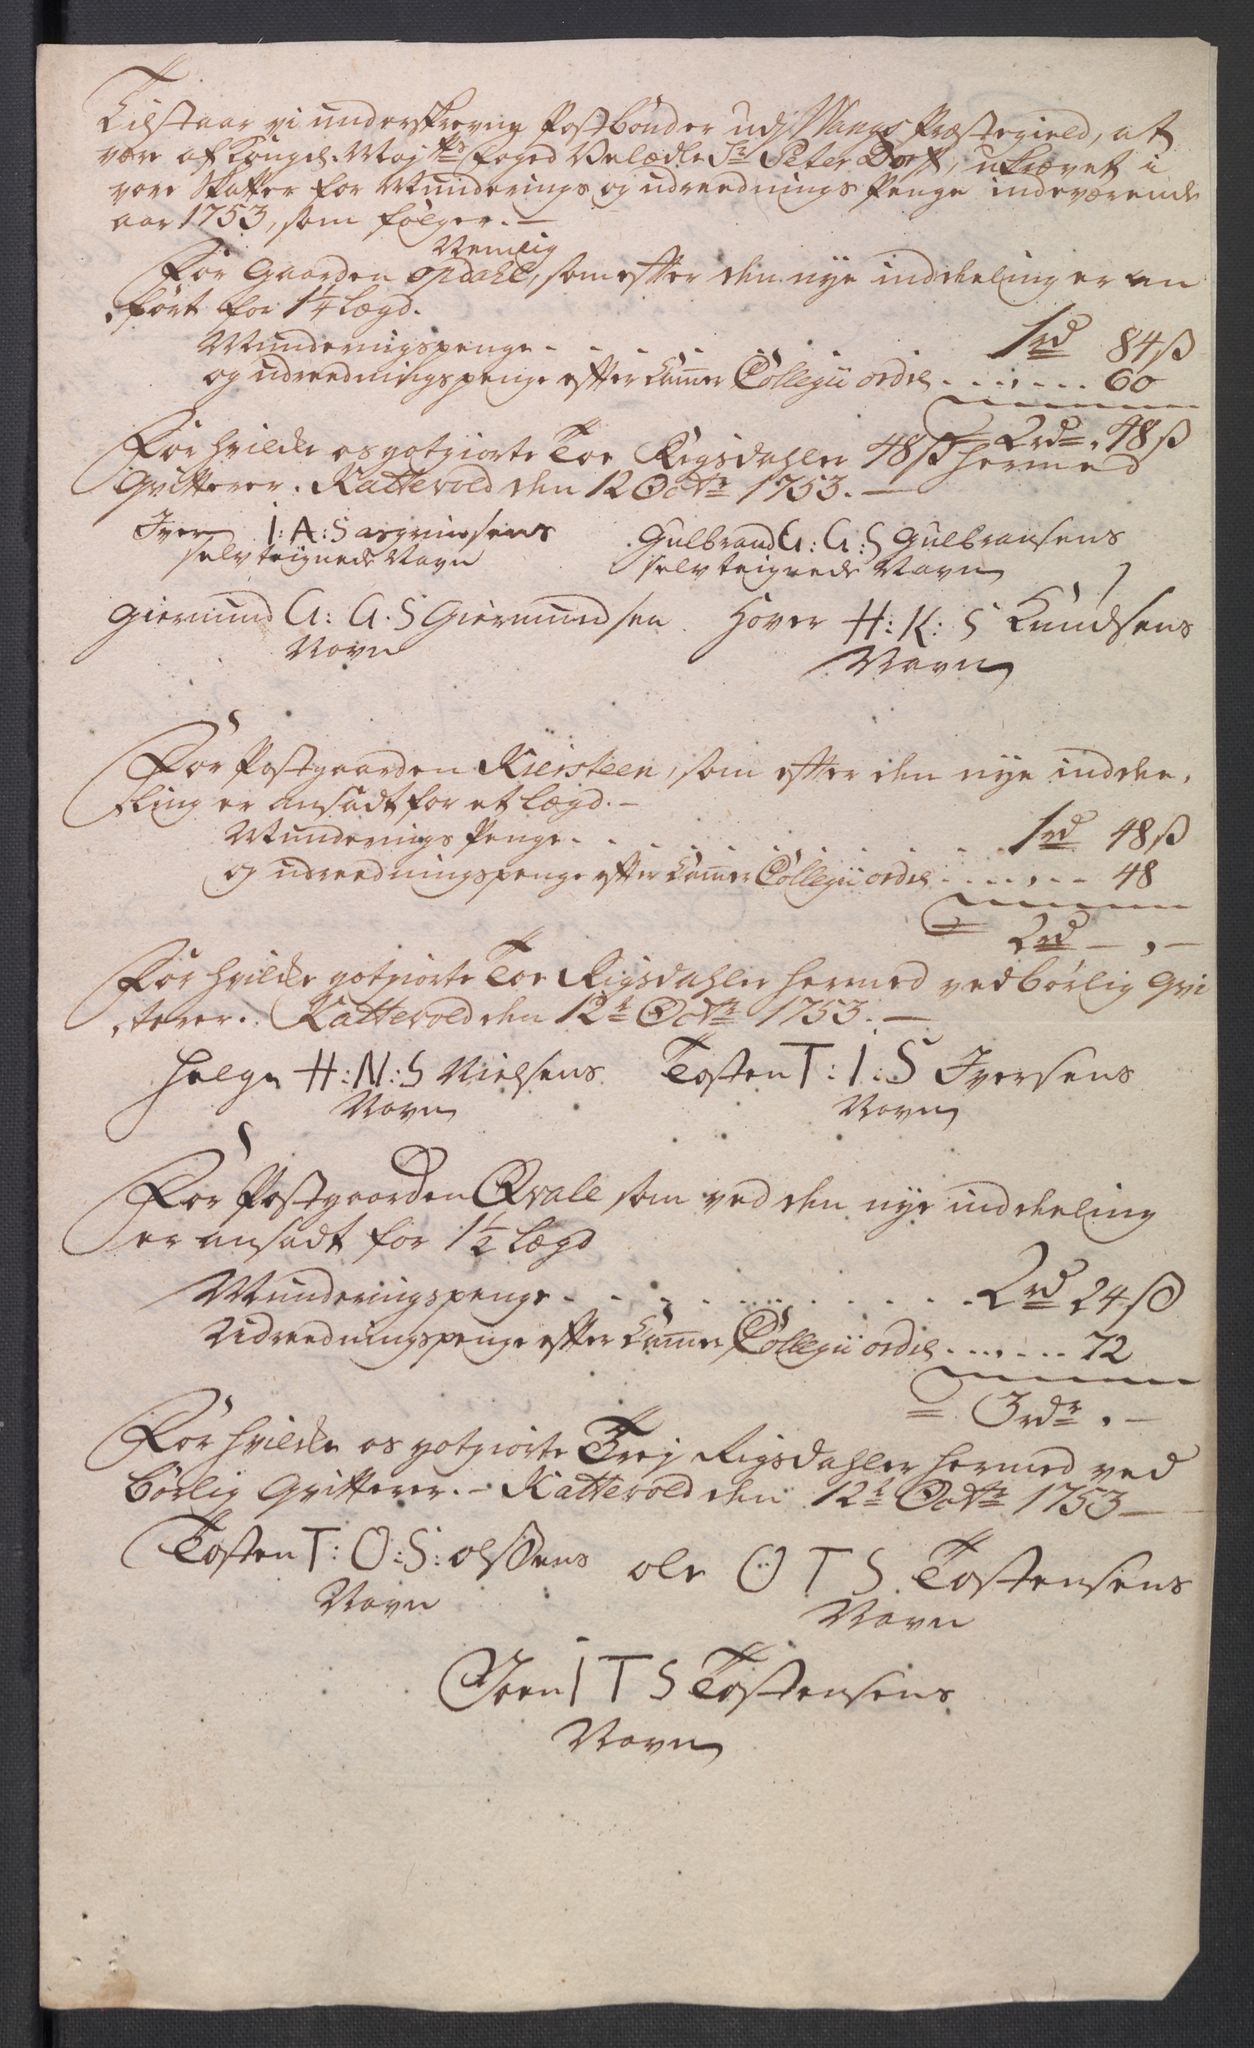 Tilstaar vi underskrevne Postbönder udj Wangs Præstegield, at
være af Kongel. Maj.ts foged Velædle Sr Peter Dorf, ukrævet i
vore Skatter for Munderings og udreednings Penge indeværende
aar 1753, som fölger. —
Nemlig
For Gaarden Opdahl, som efter den nye inddeeling er an
fört for 1¼ Lægd.
Munderingspenge . . . . . 1 rd 84 ß
og udreedningspenge efter Camer Collegii ordre . . . . . . 60
2 rdr. 48 ß
For hvilke os gotgiorte Toe Rigsdahler 48 ß hermed
Qvitterer. Kattevold den 12 Octr 1753. —
Iver I: A: S asgrimsens
selv teignede Navn
Gulbrand G: G: S Gulbransens
selv teignede Navn
Giermund G: G. S Giermundsen
Navn
Hover H: K: S Knudsens
Navn
For Postgaarden Kiersteen, som efter den nye inddee,
ling er ansadt for et Lægd. —
Munderings Penge . . . . . 1 rd 48 ß
og udreedningspenge efter Camer Collegii ordre . . . . . . 48
2 rd — , —
For hvilke gotgiorte Toe Rigsdahler hermed ved börlig Qvi
terer. Kattevold den 12t Octr 1753. —
Helge H: N: S Nielsens
Navn
Tosten T: I: S Iversens
Navn
For Postgaarden Qvale som ved den nye inddeeling
er ansadt for 1½ Lægd
Munderingspenge . . . . . 2 rd 24 ß
Udreedningspenge efter Camer Collegii ordre . . . . . . 72
3 rdr . —
For hvilke os gotgiorte Trej Rigsdahler hermed ved
börlig Qvitterer. — Kattevold den 12t Octr 1753 —
Tosten T: O: S: olsSens
Navn
ole O T S Tostensens
Navn
Joen I T S Tostensens
Navn